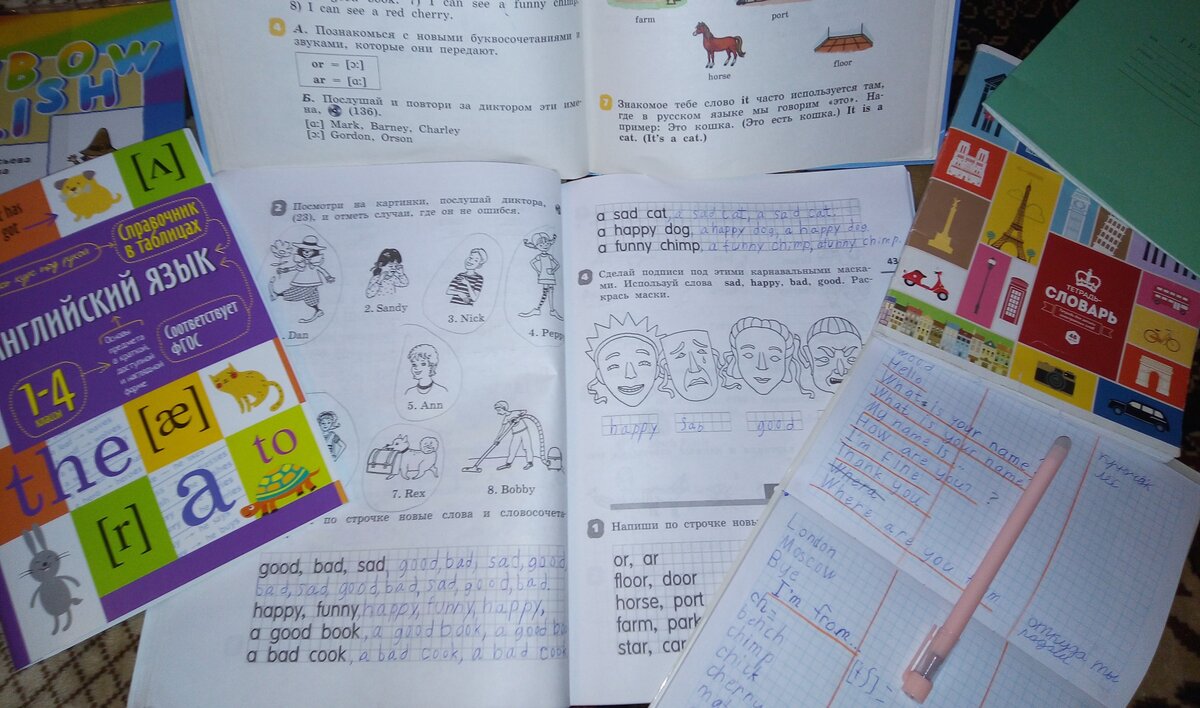 8) I can see a red cherry.
4 А. Познакомься с новыми буквосочетаниями и
звуками, которые они передают.
or = [ɔ:]
ar = [ɑ:]
Б. Послушай и повтори за диктором эти име-
на, (136).
[ɑ:] Mark, Barney, Charley
[ɔ:] Gordon, Orson
farm
port
horse
floor
7 Знакомое тебе слово it часто используется там,
где в русском языке мы говорим «это». На-
пример: Это кошка. (Это есть кошка.) It is a
cat. (It's a cat.)
BOW
LISH
[ʌ]
has
got
Справочник
в таблицах
АНГЛИЙСКИЙ ЯЗЫК
Основы
предмета
в краткой,
доступной
и наглядной
форме
Соответствует
ФГОС
1-4
классы
the
[æ]
to
[r]
a
2 Посмотри на картинки, послушай диктора,
(23), и отметь случаи, где он не ошибся.
Dan
2. Sandy
3. Nick
4. Pepp
5. Ann
7. Rex
8. Bobby
по строчке новые слова и словосочета-
good, bad, sad, good, bad, sad, good
bad, sad, good, bad, sad, good, bad.
happy, funny happy, funny, happy,
a good book, a good book, a good bo
a bad cook, a bad cook, a bad cook
a sad cat, a sad cat, a sad cat.
a happy dog, a happy dog, a happy dog
a funny chimp, a funny chimp, a funny chimp.
43
4 Сделай подписи под этими карнавальными маска-
ми. Используй слова sad, happy, bad, good. Рас-
крась маски.
happy
sad
good
1 Напиши по строчке новы
or, ar
floor, door
horse, port
farm, park
star, car
ТЕТРАДЬ-
СЛОВАРЬ
48
Hello
What is your name?
What is your name
My name is...
How are you?
I'm fine
Thank you
Where are you
London
Moscow
Bye
I'm from
откуда ты
родом
ch=
[tʃ]
bench
chimp
chick
cherry